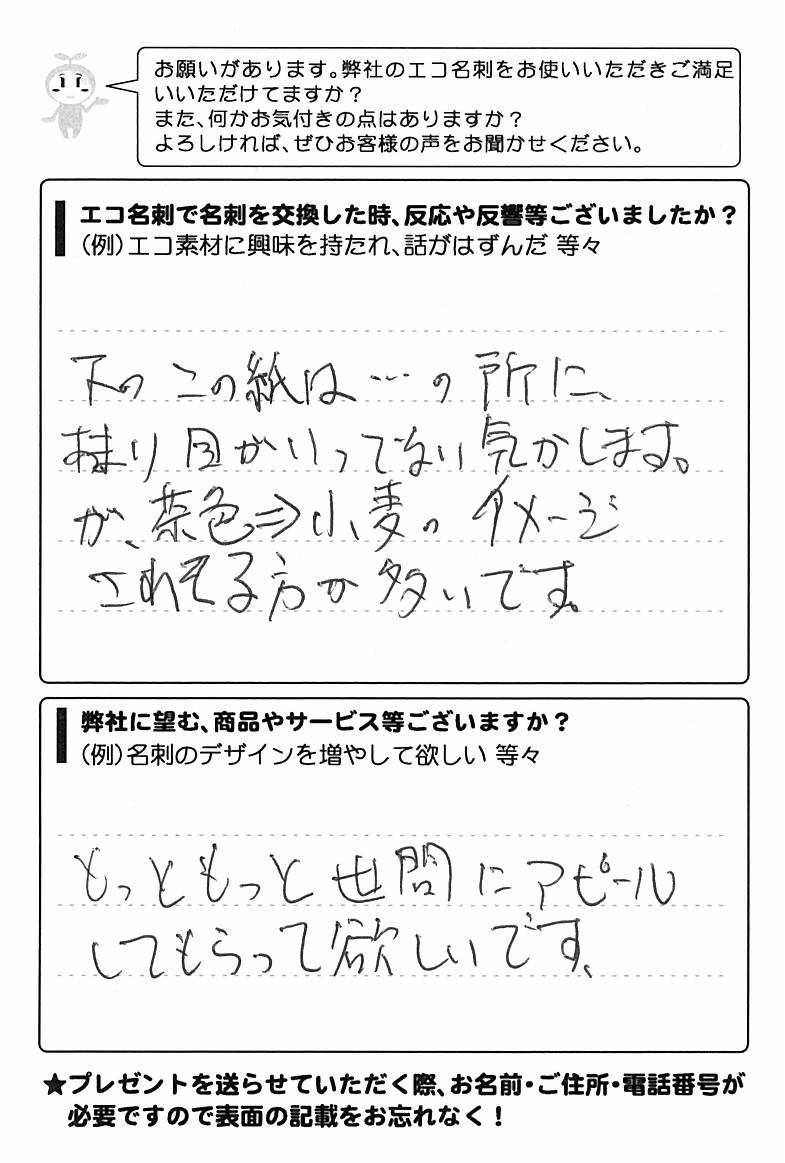 お願いがあります。弊社のエコ名刺をお使いいただきご満足
いいただけてますか？
また、何かお気付きの点はありますか？
よろしければ、ぜひお客様の声をお聞かせください。
エコ名刺で名刺を交換した時、反応や反響等ございましたか？
（例）エコ素材に興味を持たれ、話がはずんだ 等々
下の この紙は…の所に、
余り目がいってない気がします。
が、茶色⇒小麦のイメージ
されてる方が多いです。
弊社に望む、商品やサービス等ございますか？
（例）名刺のデザインを増やして欲しい 等々
もっともっと世間にアピール
してもらって欲しいです。
★プレゼントを送らせていただく際、お名前・ご住所・電話番号が
必要ですので表面の記載をお忘れなく！